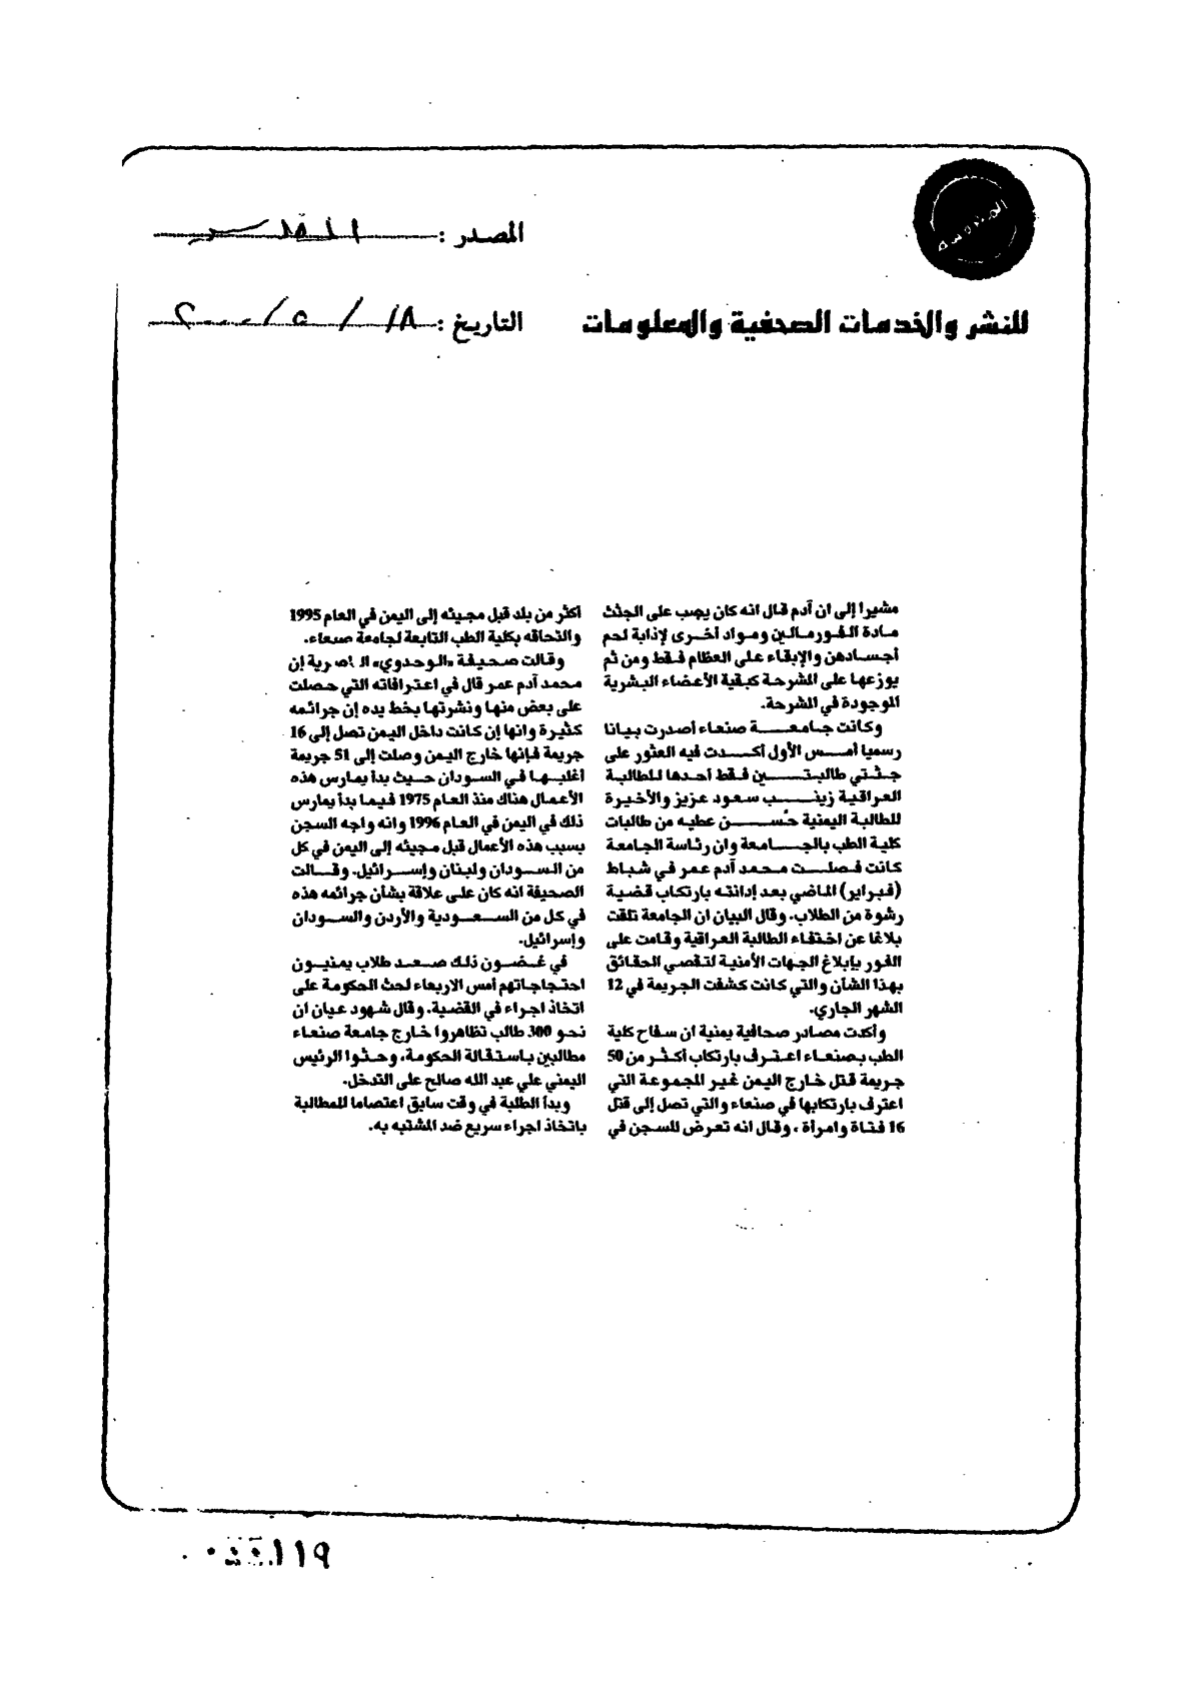 المصدر : القدس
التاريخ : ١٨ / ٥ / ٢٠٠٠
للنشر والخدمات الصحفية والمعلومات
مشيرا إلى ان آدم قال انه كان يصب على الجثث
مادة الفورمالين ومواد أخرى لإذابة لحم
أجسادهن والإبقاء على العظام فقط ومن ثم
يوزعها على المشرحة كبقية الأعضاء البشرية
الموجودة في المشرحة.
وكانت جامعة صنعاء أصدرت بيانا
رسميا أمس الأول أكدت فيه العثور على
جثتي طالبتين فقط أحدها للطالبة
العراقية زينب سعود عزيز والأخيرة
للطالبة اليمنية حُسن عطيه من طالبات
كلية الطب بالجامعة وان رئاسة الجامعة
كانت فصلت محمد آدم عمر في شباط
(فبراير) الماضي بعد إدانته بارتكاب قضية
رشوة من الطلاب. وقال البيان ان الجامعة تلقت
بلاغا عن اختفاء الطالبة العراقية وقامت على
الفور بإبلاغ الجهات الأمنية لتقصي الحقائق
بهذا الشأن والتي كانت كشفت الجريمة في 12
الشهر الجاري.
وأكدت مصادر صحافية يمنية ان سفاح كلية
الطب بصنعاء اعترف بارتكاب أكثر من 50
جريمة قتل خارج اليمن غير المجموعة التي
اعترف بارتكابها في صنعاء والتي تصل إلى قتل
16 فتاة وامرأة ، وقال انه تعرض للسجن في
أكثر من بلد قبل مجيئه إلى اليمن في العام 1995
والتحاقه بكلية الطب التابعة لجامعة صنعاء.
وقالت صحيفة «الوحدوي» إن
محمد آدم عمر قال في اعترافاته التي حصلت
على بعض منها ونشرتها بخط يده إن جرائمه
كثيرة وانها إن كانت داخل اليمن تصل إلى 16
جريمة فإنها خارج اليمن وصلت إلى 51 جريمة
أغلبها في السودان حيث بدأ يمارس هذه
الأعمال هناك منذ العام 1975 فيما بدأ يمارس
ذلك في اليمن في العام 1996 وانه واجه السجن
بسبب هذه الأعمال قبل مجيئه إلى اليمن في كل
من السودان ولبنان وإسرائيل. وقالت
الصحيفة انه كان على علاقة بشأن جرائمه هذه
في كل من السعودية والأردن والسودان
وإسرائيل.
في غضون ذلك صعد طلاب يمنيون
احتجاجاتهم أمس الاربعاء لحث الحكومة على
اتخاذ اجراء في القضية. وقال شهود عيان ان
نحو 300 طالب تظاهروا خارج جامعة صنعاء
مطالبين باستقالة الحكومة، وحثوا الرئيس
اليمني علي عبد الله صالح على التدخل.
وبدأ الطلبة في وقت سابق اعتصاما للمطالبة
باتخاذ اجراء سريع ضد المشتبه به.